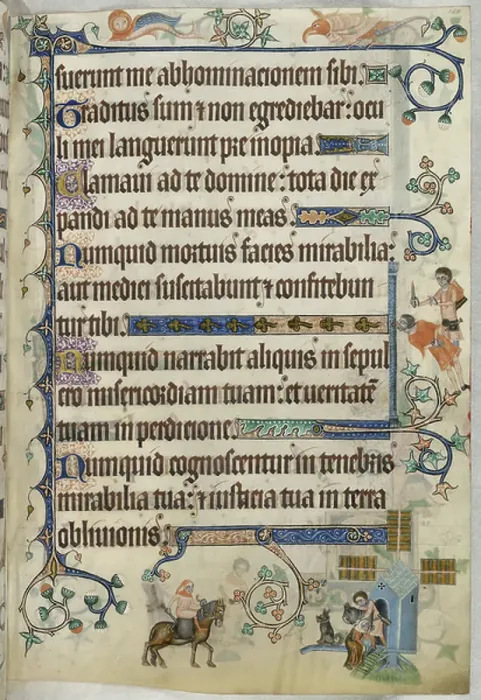 fuerunt me abhominacionem sibi.
Traditus sum ⁊ non egrediebar: ocu
li mei languerunt pre inopia.
Clamaui ad te domine: tota die ex
pandi ad te manus meas.
Numquid mortuis facies mirabilia:
aut medici suscitabunt ⁊ confitebun
tur tibi.
Numquid narrabit aliquis in sepul
cro misericordiam tuam: et ueritatē
tuam in perdicione.
Numquid cognoscentur in tenebris
mirabilia tua: ⁊ iusticia tua in terra
obliuionis.